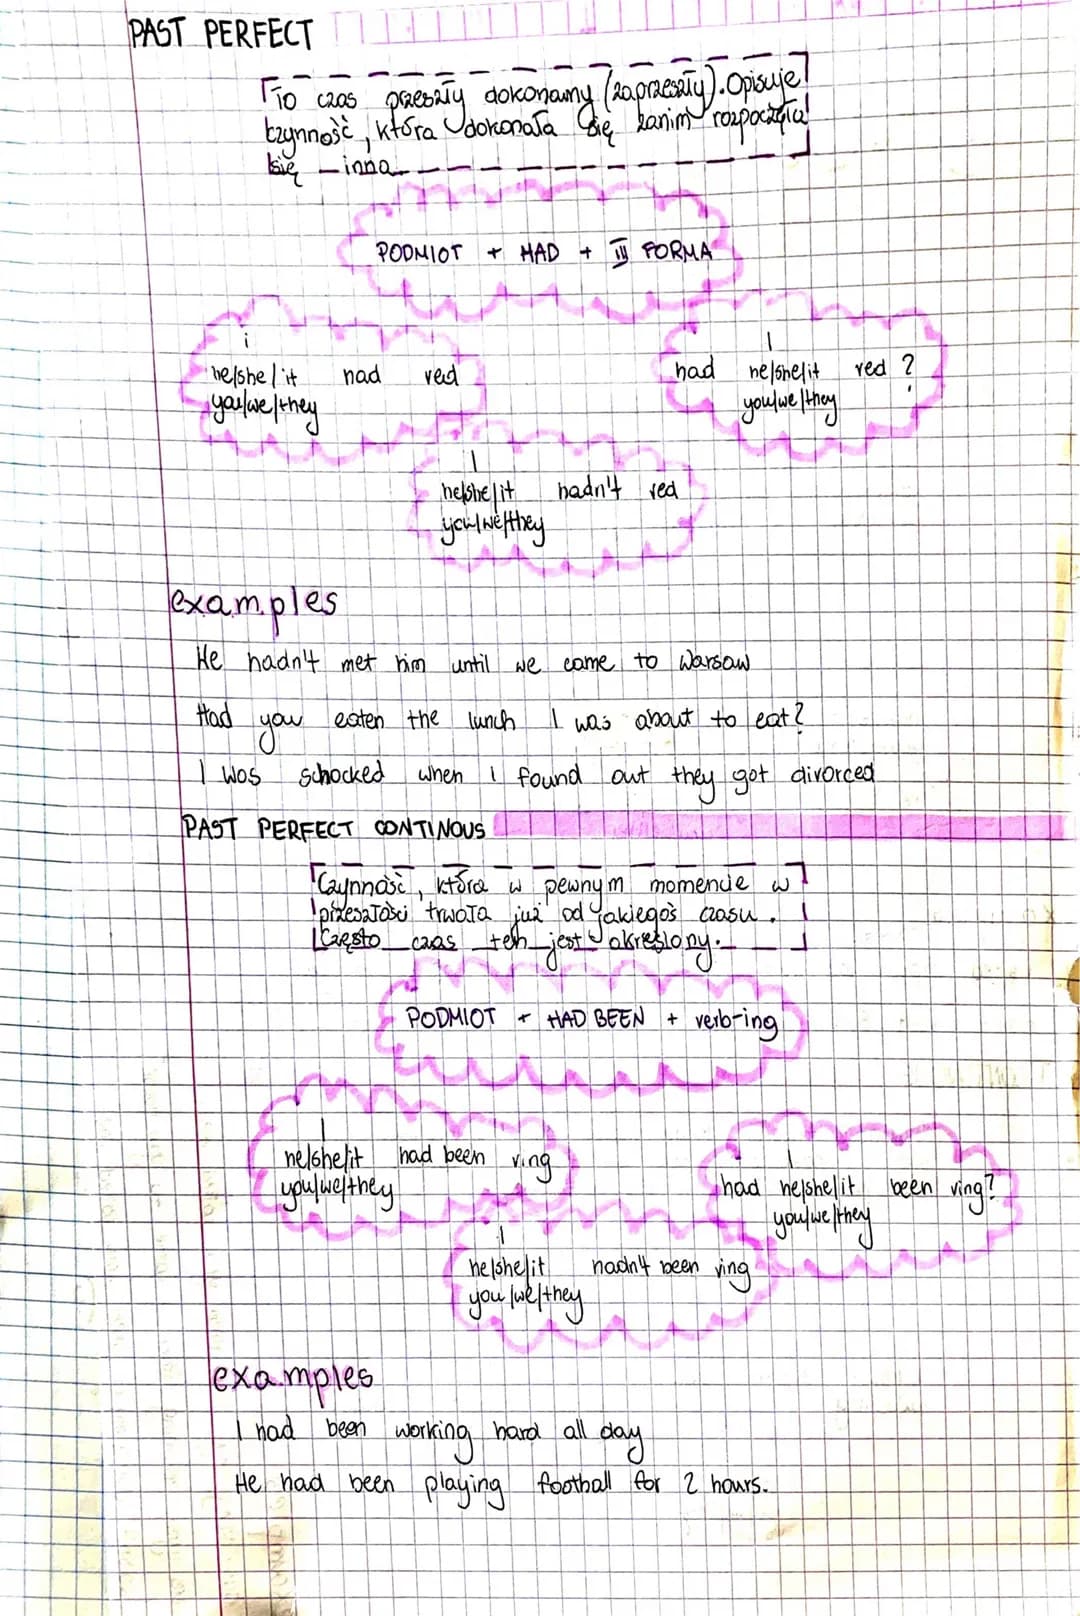 PAST PERFECT
To czas przeszły dokonamy (zaprzeszły). Opisuje
czynność, która dokonała się zanim rozpoczęła
się inna
PODMIOT + HAD + III FORMA
i
he/she/it had red
you/we/they
I
had he/she/it red ?
you/we/they
I
he/she/it hadn't red
you/we/they
examples
He hadn't met him until we came to Warsaw
Had you eaten the lunch I was about to eat?
I was schocked when I found out they got divorced
PAST PERFECT CONTINOUS
Czynność, która w pewnym momencie w
przeszłości trwała już od jakiegoś czasu.
Często czas ten jest określony.
PODMIOT + HAD BEEN + verb-ing
I
he/she/it had been ving
you/we/they
I
had he/she/it been ving?
you/we/they
I
he/she/it hadn't been ving
you/we/they
examples
I had been working hard all day
He had been playing football for 2 hours.